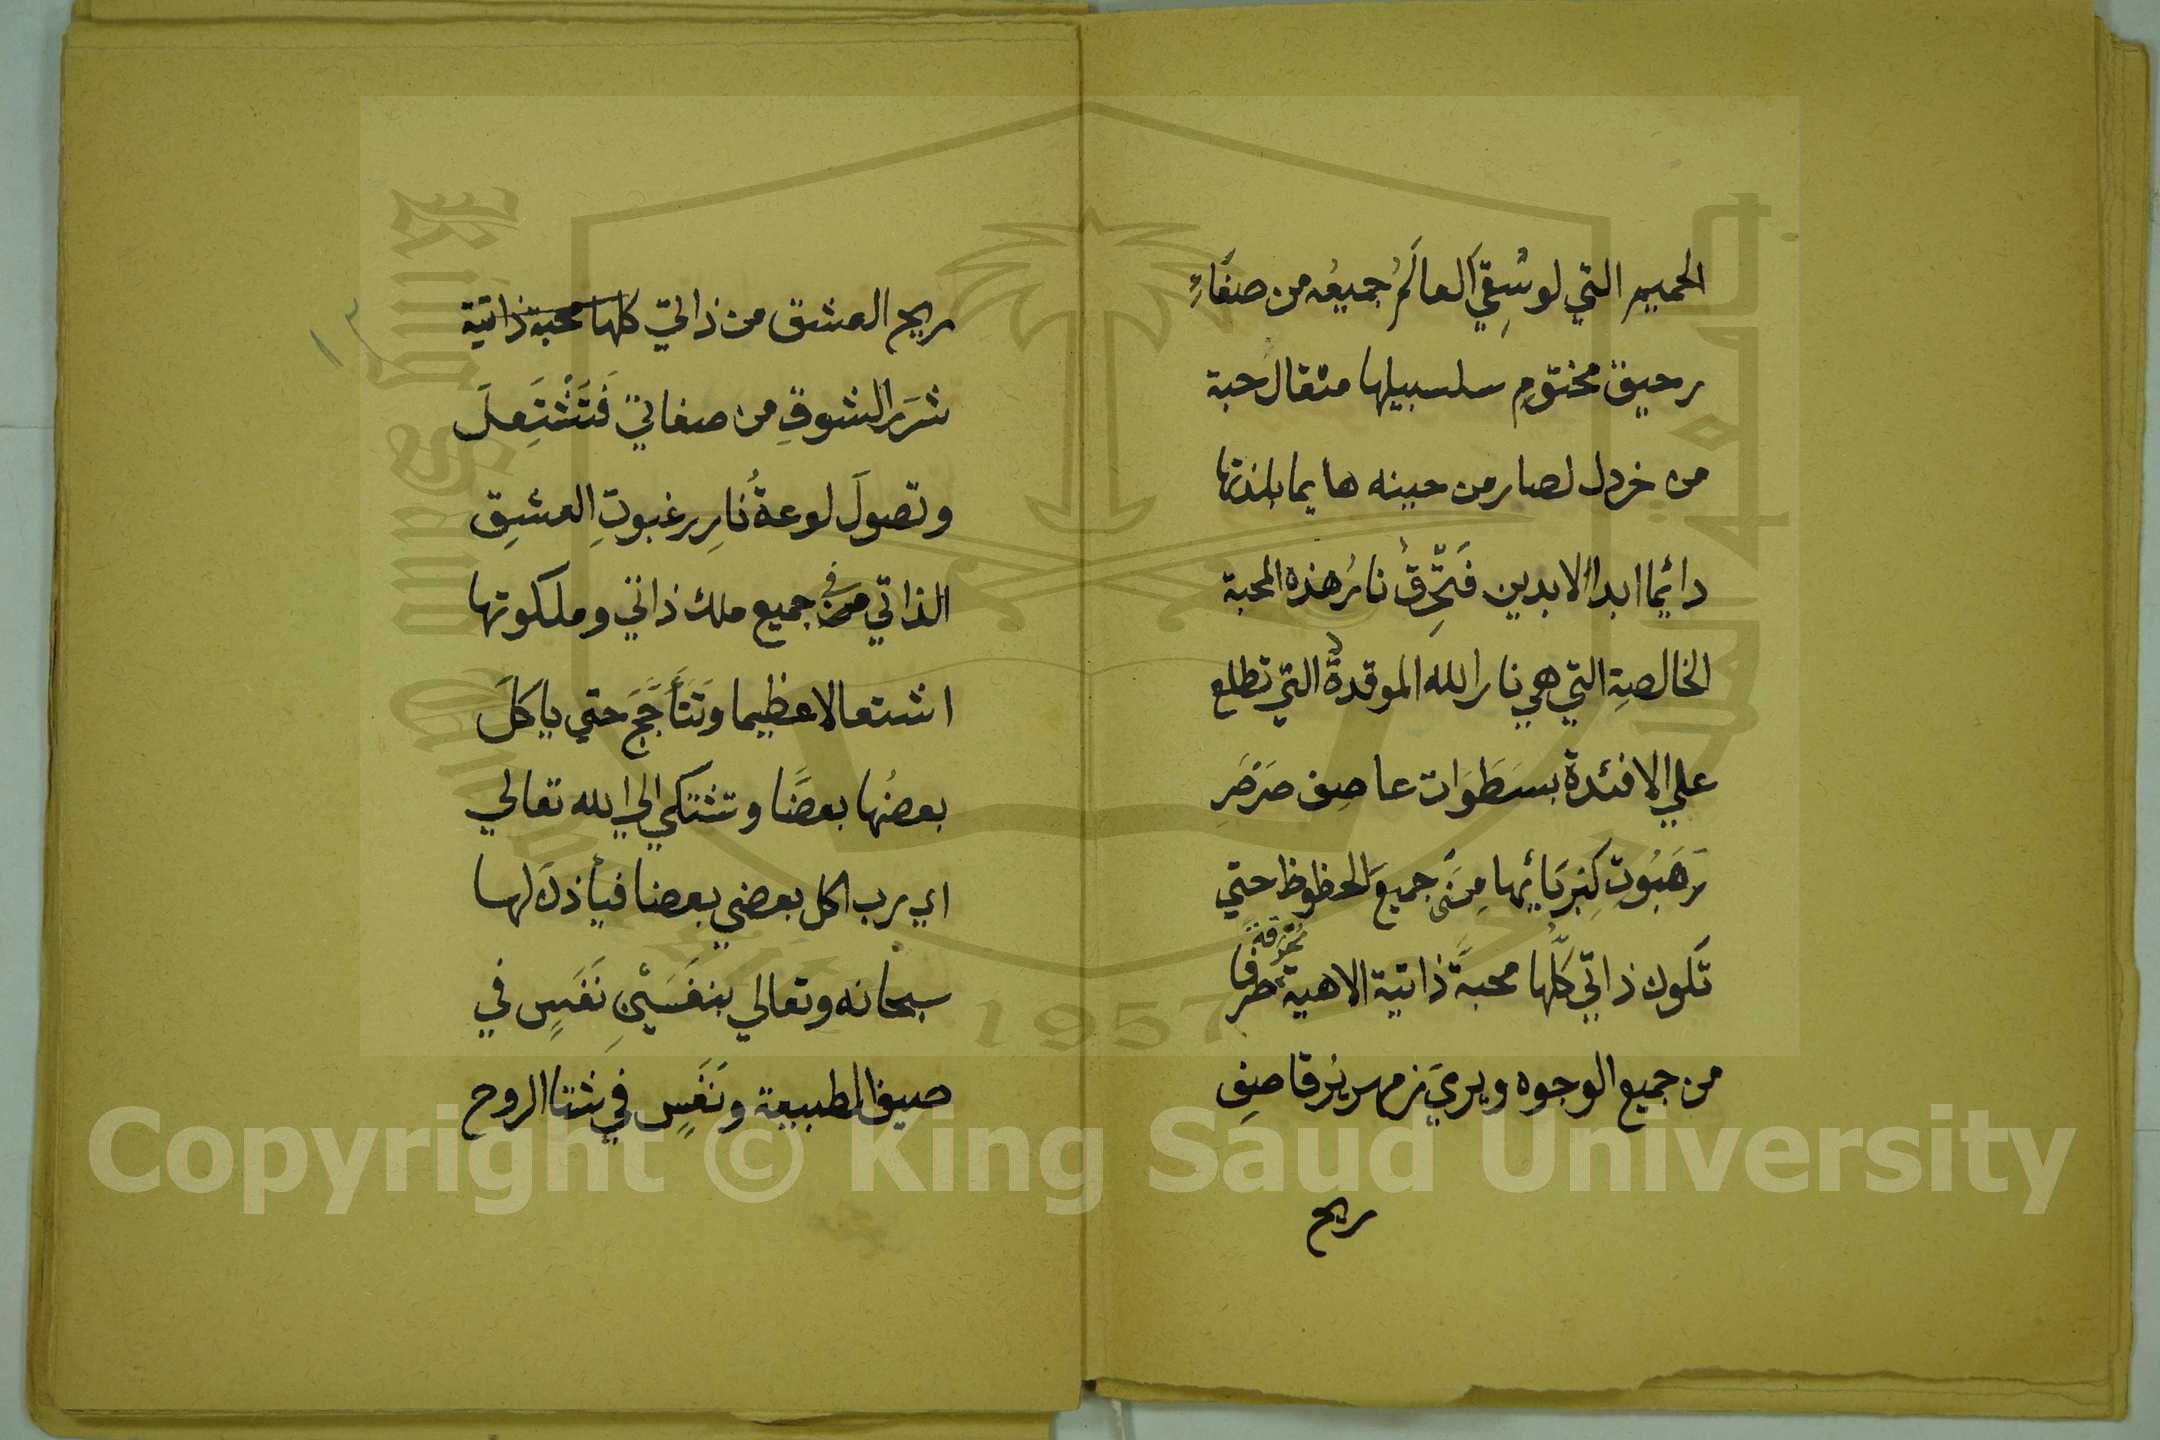 الحميم التي لو سُقِيَ العالَمُ جميعُه من صفاءِ
رحيق مختومِ سلسبيلها مثقال حبة
من خردل لصار من حينه هايما بلذتها
دائما ابد الابدين فَتُحْرِقُ نارُ هذه المحبة
الخالصةِ التي هي نار الله الموقدةُ التي تطلع
علي الافئدة بسَطَوَات عاصِف صَرْصَرِ
رَهَبُوتِ كِبْرِيَائِها مِنِّي جميعَ الحظوظ حتي
تكون ذاتي كلُّها محبةً ذاتية الاهية صرفا
محرقةً
من جميع الوجوه ويريَ زمهريرُ قاصفِ
ريح
ريح العشق من ذاتي كلها محبة ذاتية
شَرَرَ الشوقِ من صفاتي فَتَشْتَعِلَ
وتصولَ لوعةُ نارِ رغبوتِ العشقِ
الذاتي من في جميع ملك ذاتي وملكوتها
اشتعالا عظيما وتَتَأَجَّجَ حتي ياكلَ
بعضُها بعضًا وتشتكي الي الله تعالي
اي رب اكل بعضي بعضا فيأذن لها
سبحانه وتعالي بنفَسَيْنِ نَفَسٍ في
صيف الطبيعة ونَفَسٍ في شتا الروح
١٣
Copyright © King Saud University
King Saud University
1957